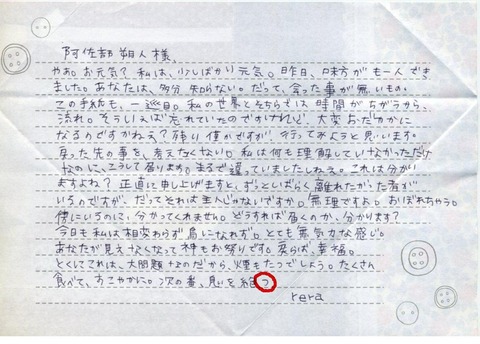 阿佐部朔人様、
やあ。お元気？私は、少しばかり元気。昨日、味方がも一人でき
ました。あなたは、多分知らない。だって、会った事が無いもの。
この手紙も、一巡目。私の世界とそちらでは時間がちがうから、
流れ。そういえば忘れていたのですけれど、大変おだやかに
なるのですかねえ？残り僅かですが、行ってみようと思います。
戻った先の事を、考えたくない。私は何も理解していなかっただけ
なのに、こうして居りまぁ。まるで違っていましたしねえ。これは分かり
ますよね？正直に申し上げますと、ずっとしばらく離れたがった者が
いるのですが、だってそれは主人じゃないですか。無理ですよ。おぼれちゃう。
傍にいるのに、分かってくれません。どうすれば届くのか、分かります？
今日も私は相変わらず鳥になれず。とても無気力な感じ。
あなたが見えなくなって神もお祭りです。戻らば、幸福。
とくにこれは、大問題なのだから、煙もたつでしょう。たくさん
食べて、すこやかに。次の春、息を絶つ
rera